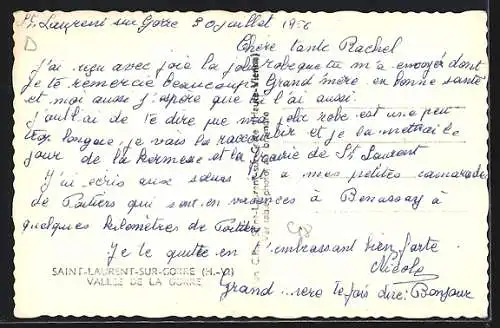 St Laurent sur Gorre 30 juillet 1956
Chère tante Rachel
J'ai reçu avec joie la jolie robe que tu m'a envoyé dont
Je te remercie beaucoup. Grand'mère en bonne santé
et moi aussi j'espère que toi l'ai aussi.
J'oubliai de te dire que ma jolie robe est une peu
trop longue, je vais la raccourcir et je la mettrai le
jour de la kermesse et la frairie de St Laurent
J'ai écris aux sœurs et a mes petites camarades
de Poitiers qui sont en vacances à Benassay à
quelques kilomètres de Poitiers
Je te quitte en t'embrassant bien forte
Nicole
SAINT-LAURENT-SUR-GORRE (H.-V.)
VALLÉE DE LA GORRE
Grand mère te fais dire Bonjour